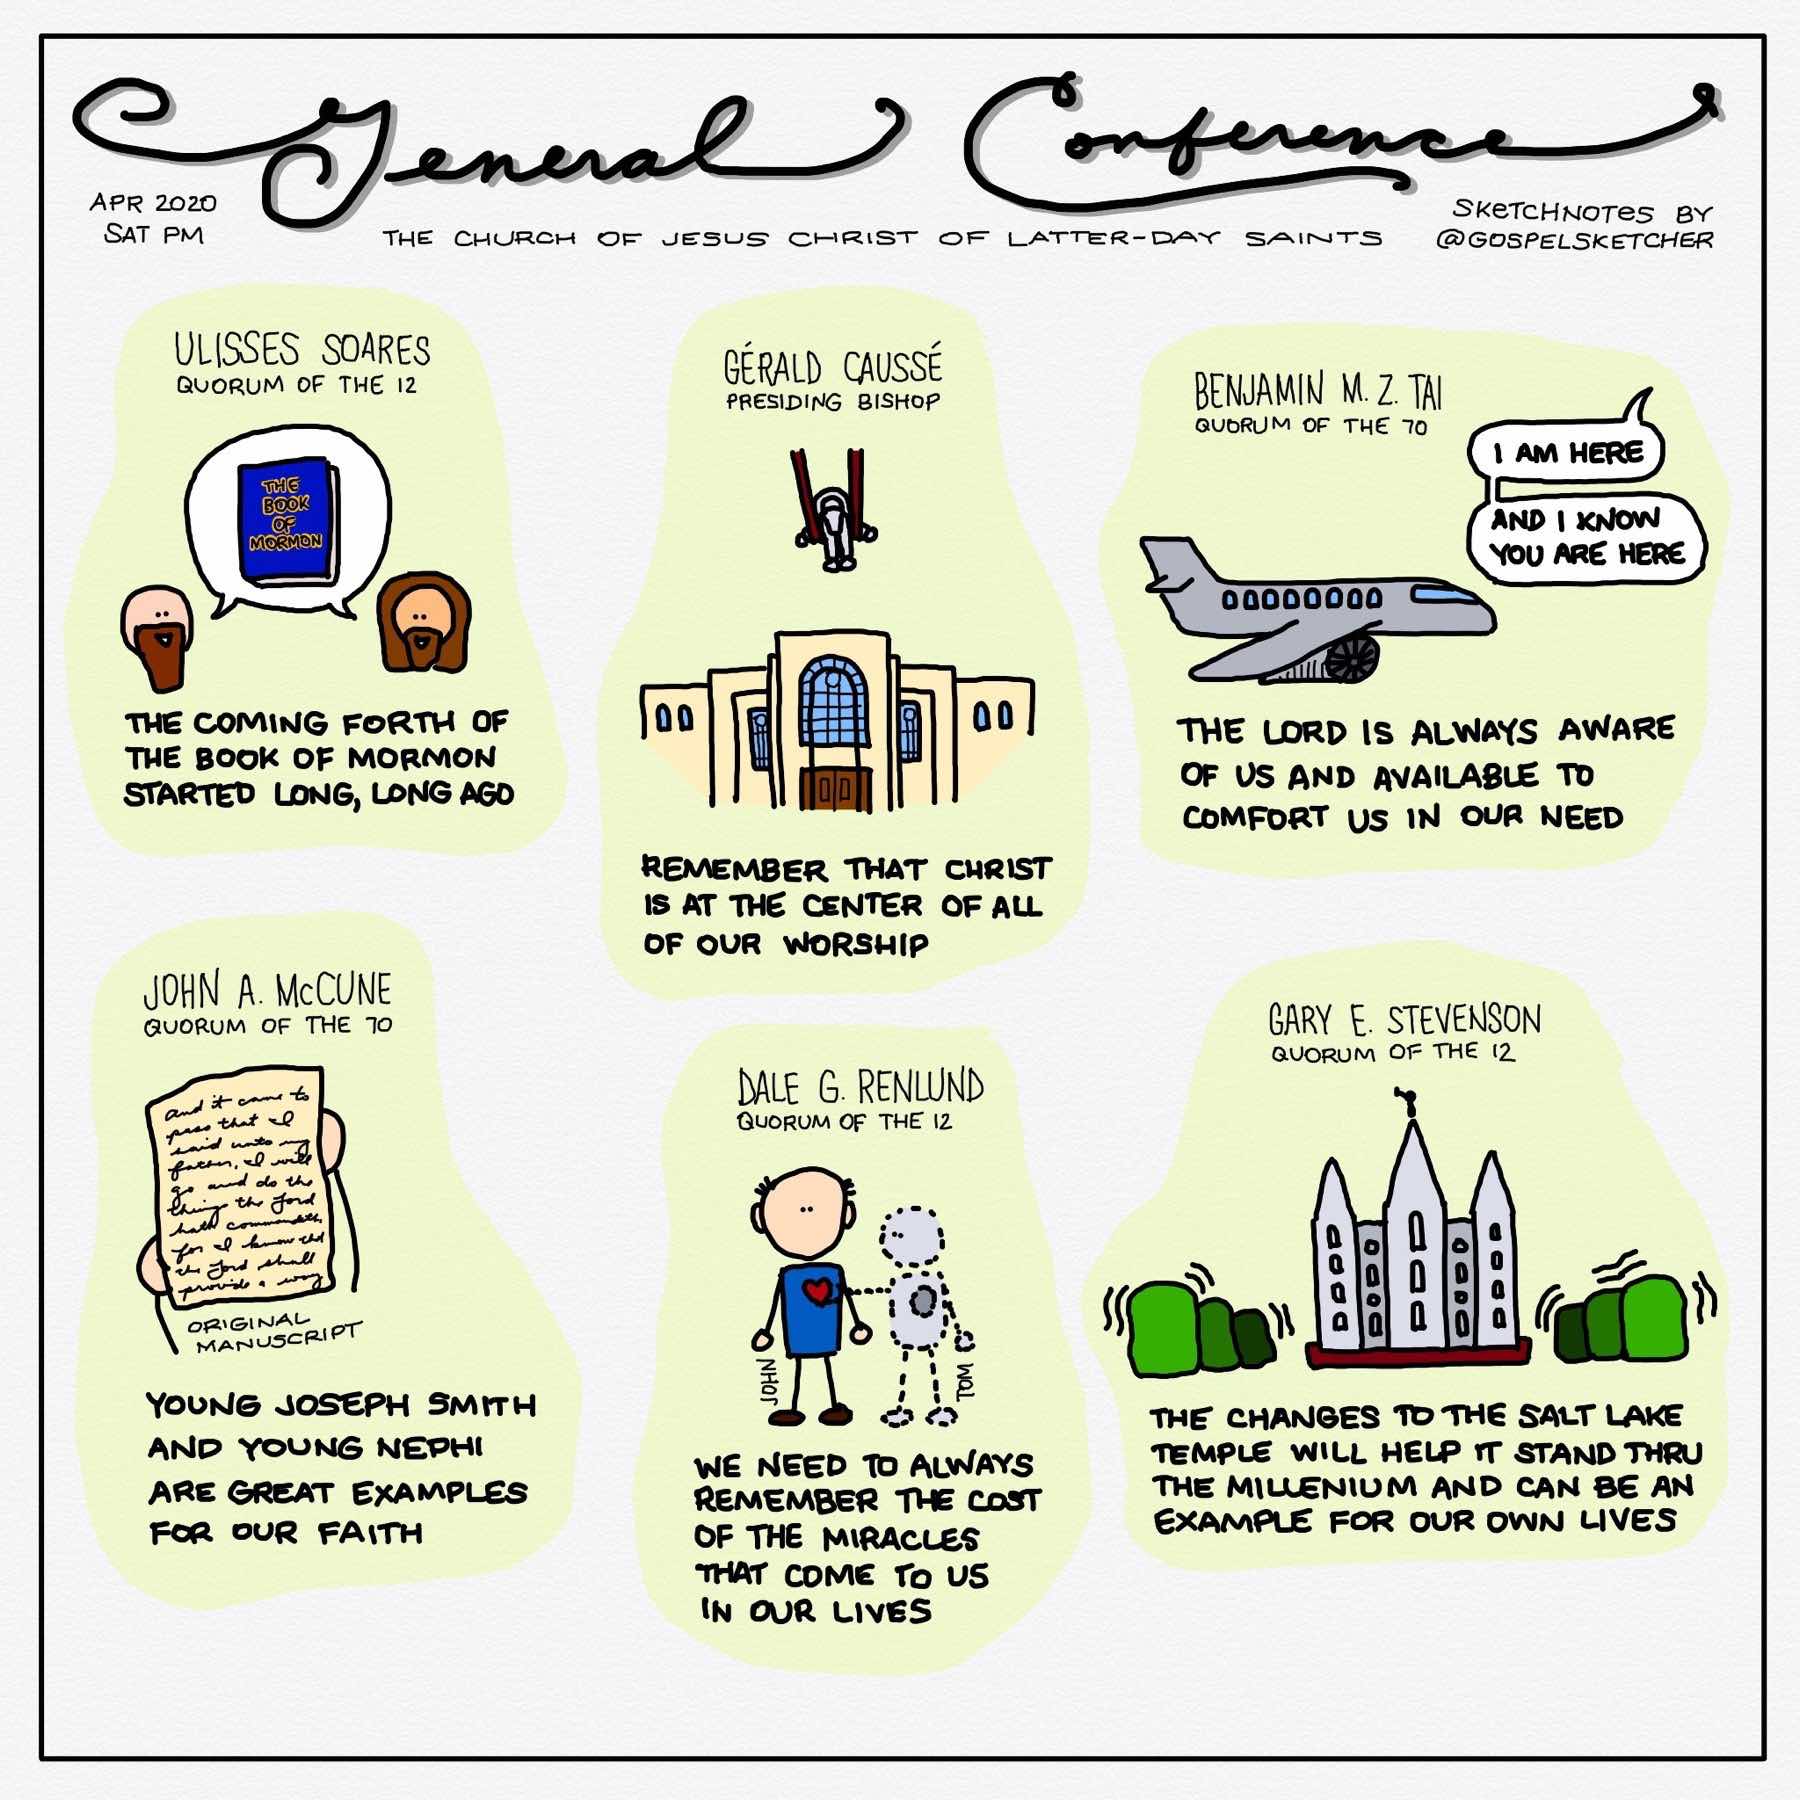 General Conference
APR 2020
SAT PM
THE CHURCH OF JESUS CHRIST OF LATTER-DAY SAINTS
SKETCHNOTES BY
@GOSPELSKETCHER
ULISSES SOARES
QUORUM OF THE 12
THE
BOOK
OF
MORMON
THE COMING FORTH OF
THE BOOK OF MORMON
STARTED LONG, LONG AGO
GÉRALD CAUSSÉ
PRESIDING BISHOP
REMEMBER THAT CHRIST
IS AT THE CENTER OF ALL
OF OUR WORSHIP
BENJAMIN M. Z. TAI
QUORUM OF THE 70
I AM HERE
AND I KNOW
YOU ARE HERE
THE LORD IS ALWAYS AWARE
OF US AND AVAILABLE TO
COMFORT US IN OUR NEED
JOHN A. McCUNE
QUORUM OF THE 70
and it came to
pass that I
said unto my
father, I will
go and do the
things the Lord
hath commanded,
for I know that
the Lord shall
provide a way
ORIGINAL
MANUSCRIPT
YOUNG JOSEPH SMITH
AND YOUNG NEPHI
ARE GREAT EXAMPLES
FOR OUR FAITH
DALE G. RENLUND
QUORUM OF THE 12
JOHN
TOM
WE NEED TO ALWAYS
REMEMBER THE COST
OF THE MIRACLES
THAT COME TO US
IN OUR LIVES
GARY E. STEVENSON
QUORUM OF THE 12
THE CHANGES TO THE SALT LAKE
TEMPLE WILL HELP IT STAND THRU
THE MILLENIUM AND CAN BE AN
EXAMPLE FOR OUR OWN LIVES